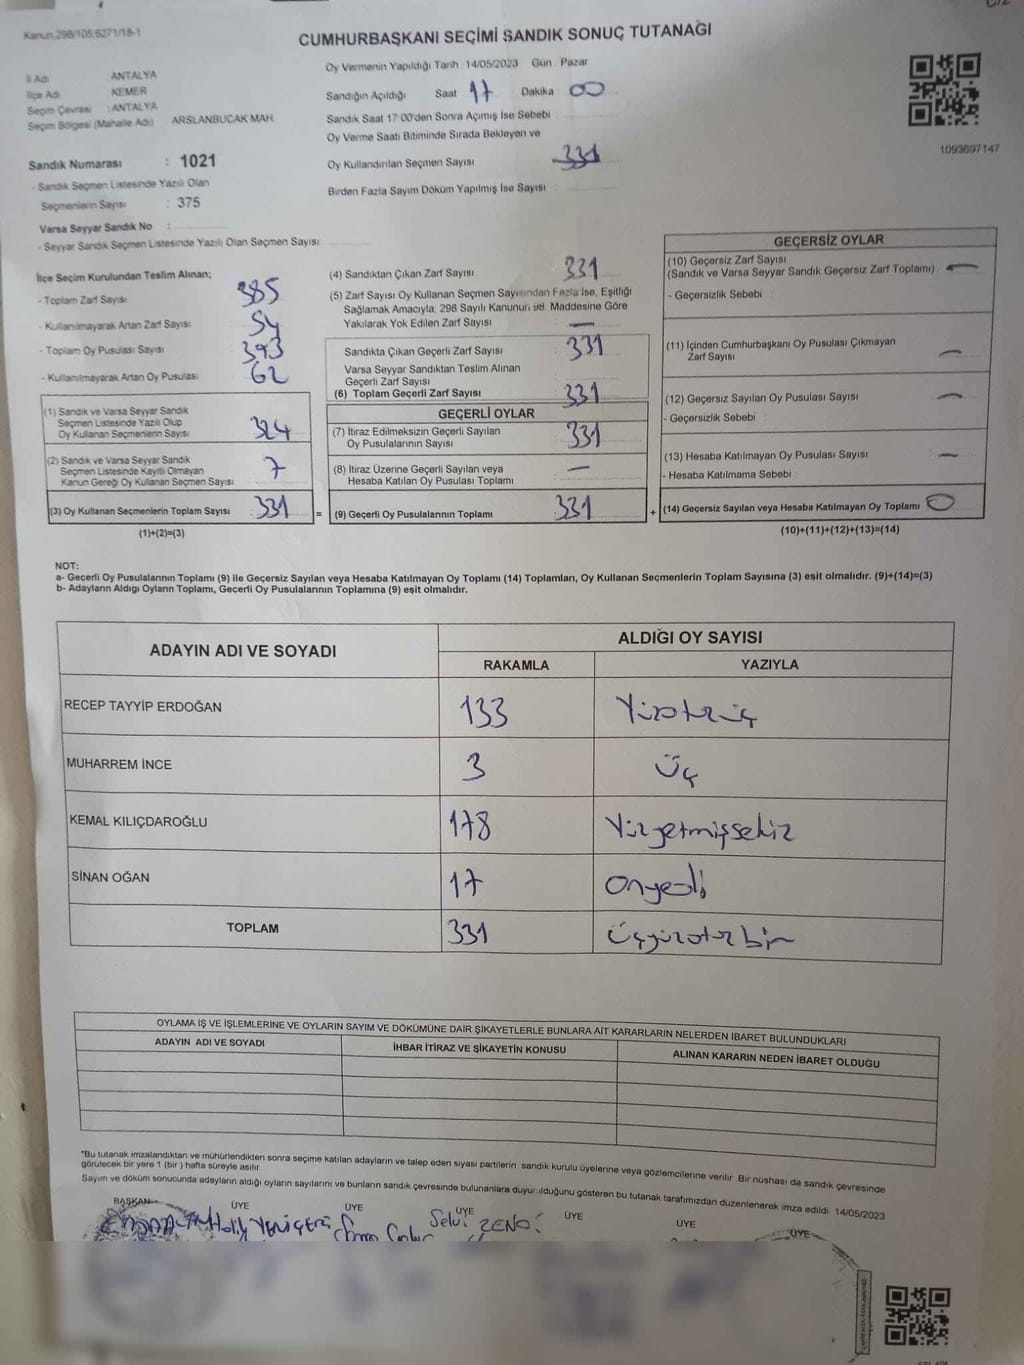 Kanun,298/105,6271/18-1
CUMHURBAŞKANI SEÇİMİ SANDIK SONUÇ TUTANAĞI
İl Adı : ANTALYA
İlçe Adı : KEMER
Seçim Çevresi : ANTALYA
Seçim Bölgesi (Mahalle Adı) ARSLANBUCAK MAH.
Sandık Numarası : 1021
- Sandık Seçmen Listesinde Yazılı Olan
Seçmenlerin Sayısı : 375
Varsa Seyyar Sandık No :
- Seyyar Sandık Seçmen Listesinde Yazılı Olan Seçmen Sayısı
Oy Vermenin Yapıldığı Tarih : 14/05/2023 Gün : Pazar
Sandığın Açıldığı Saat 17 Dakika 00
Sandık Saat 17.00'den Sonra Açımış İse Sebebi
Oy Verme Saati Bitiminde Sırada Bekleyen ve
Oy Kullandırılan Seçmen Sayısı 331
Birden Fazla Sayım Döküm Yapılmış İse Sayısı
1093697147
İlçe Seçim Kurulundan Teslim Alınan;
- Toplam Zarf Sayısı 385
- Kullanılmayarak Artan Zarf Sayısı 54
- Toplam Oy Pusulası Sayısı 393
- Kullanılmayarak Artan Oy Pusulası 62
(1) Sandık ve Varsa Seyyar Sandık
Seçmen Listesinde Yazılı Olup
Oy Kullanan Seçmenlerin Sayısı 324
(2) Sandık ve Varsa Seyyar Sandık
Seçmen Listesinde Kayıtlı Olmayan
Kanun Gereği Oy Kullanan Seçmen Sayısı 7
(3) Oy Kullanan Seçmenlerin Toplam Sayısı 331 =
(1)+(2)=(3)
(4) Sandıktan Çıkan Zarf Sayısı 331
(5) Zarf Sayısı Oy Kullanan Seçmen Sayısından Fazla İse, Eşitliği
Sağlamak Amacıyla, 298 Sayılı Kanunun 98. Maddesine Göre
Yakılarak Yok Edilen Zarf Sayısı —
Sandıkta Çıkan Geçerli Zarf Sayısı 331
Varsa Seyyar Sandıktan Teslim Alınan
Geçerli Zarf Sayısı
(6) Toplam Geçerli Zarf Sayısı 331
GEÇERLİ OYLAR
(7) İtiraz Edilmeksizin Geçerli Sayılan
Oy Pusulalarının Sayısı 331
(8) İtiraz Üzerine Geçerli Sayılan veya
Hesaba Katılan Oy Pusulası Toplamı —
(9) Geçerli Oy Pusulalarının Toplamı 331 +
GEÇERSİZ OYLAR
(10) Geçersiz Zarf Sayısı
(Sandık ve Varsa Seyyar Sandık Geçersiz Zarf Toplamı) —
- Geçersizlik Sebebi :
(11) İçinden Cumhurbaşkanı Oy Pusulası Çıkmayan
Zarf Sayısı —
(12) Geçersiz Sayılan Oy Pusulası Sayısı —
- Geçersizlik Sebebi :
(13) Hesaba Katılmayan Oy Pusulası Sayısı —
- Hesaba Katılmama Sebebi :
(14) Geçersiz Sayılan veya Hesaba Katılmayan Oy Toplamı 0
(10)+(11)+(12)+(13)=(14)
NOT:
a- Gecerli Oy Pusulalarının Toplamı (9) ile Geçersiz Sayılan veya Hesaba Katılmayan Oy Toplamı (14) Toplamları, Oy Kullanan Seçmenlerin Toplam Sayısına (3) eşit olmalıdır. (9)+(14)=(3)
b- Adayların Aldığı Oyların Toplamı, Gecerli Oy Pusulalarının Toplamına (9) eşit olmalıdır.
ADAYIN ADI VE SOYADI ALDIĞI OY SAYISI
RAKAMLA YAZIYLA
RECEP TAYYİP ERDOĞAN 133 Yüzotzüç
MUHARREM İNCE 3 Üç
KEMAL KILIÇDAROĞLU 178 Yüzyetmişsekiz
SİNAN OĞAN 17 Onyedi
TOPLAM 331 Üçyüzotuzbir
OYLAMA İŞ VE İŞLEMLERİNE VE OYLARIN SAYIM VE DÖKÜMÜNE DAİR ŞİKAYETLERLE BUNLARA AİT KARARLARIN NELERDEN İBARET BULUNDUKLARI
ADAYIN ADI VE SOYADI İHBAR İTİRAZ VE ŞİKAYETİN KONUSU ALINAN KARARIN NEDEN İBARET OLDUĞU
*Bu tutanak imzalandıktan ve mühürlendikten sonra seçime katılan adayların ve talep eden siyasi partilerin sandık kurulu üyelerine veya gözlemcilerine verilir. Bir nüshası da sandık çevresinde
görülecek bir yere 1 (bir) hafta süreyle asılır.
Sayım ve döküm sonucunda adayların aldığı oyların sayılarını ve bunların sandık çevresinde bulunanlara duyurulduğunu gösteren bu tutanak tarafımızdan düzenlenerek imza edildi. 14/05/2023
BAŞKAN ÜYE ÜYE ÜYE ÜYE ÜYE ÜYE